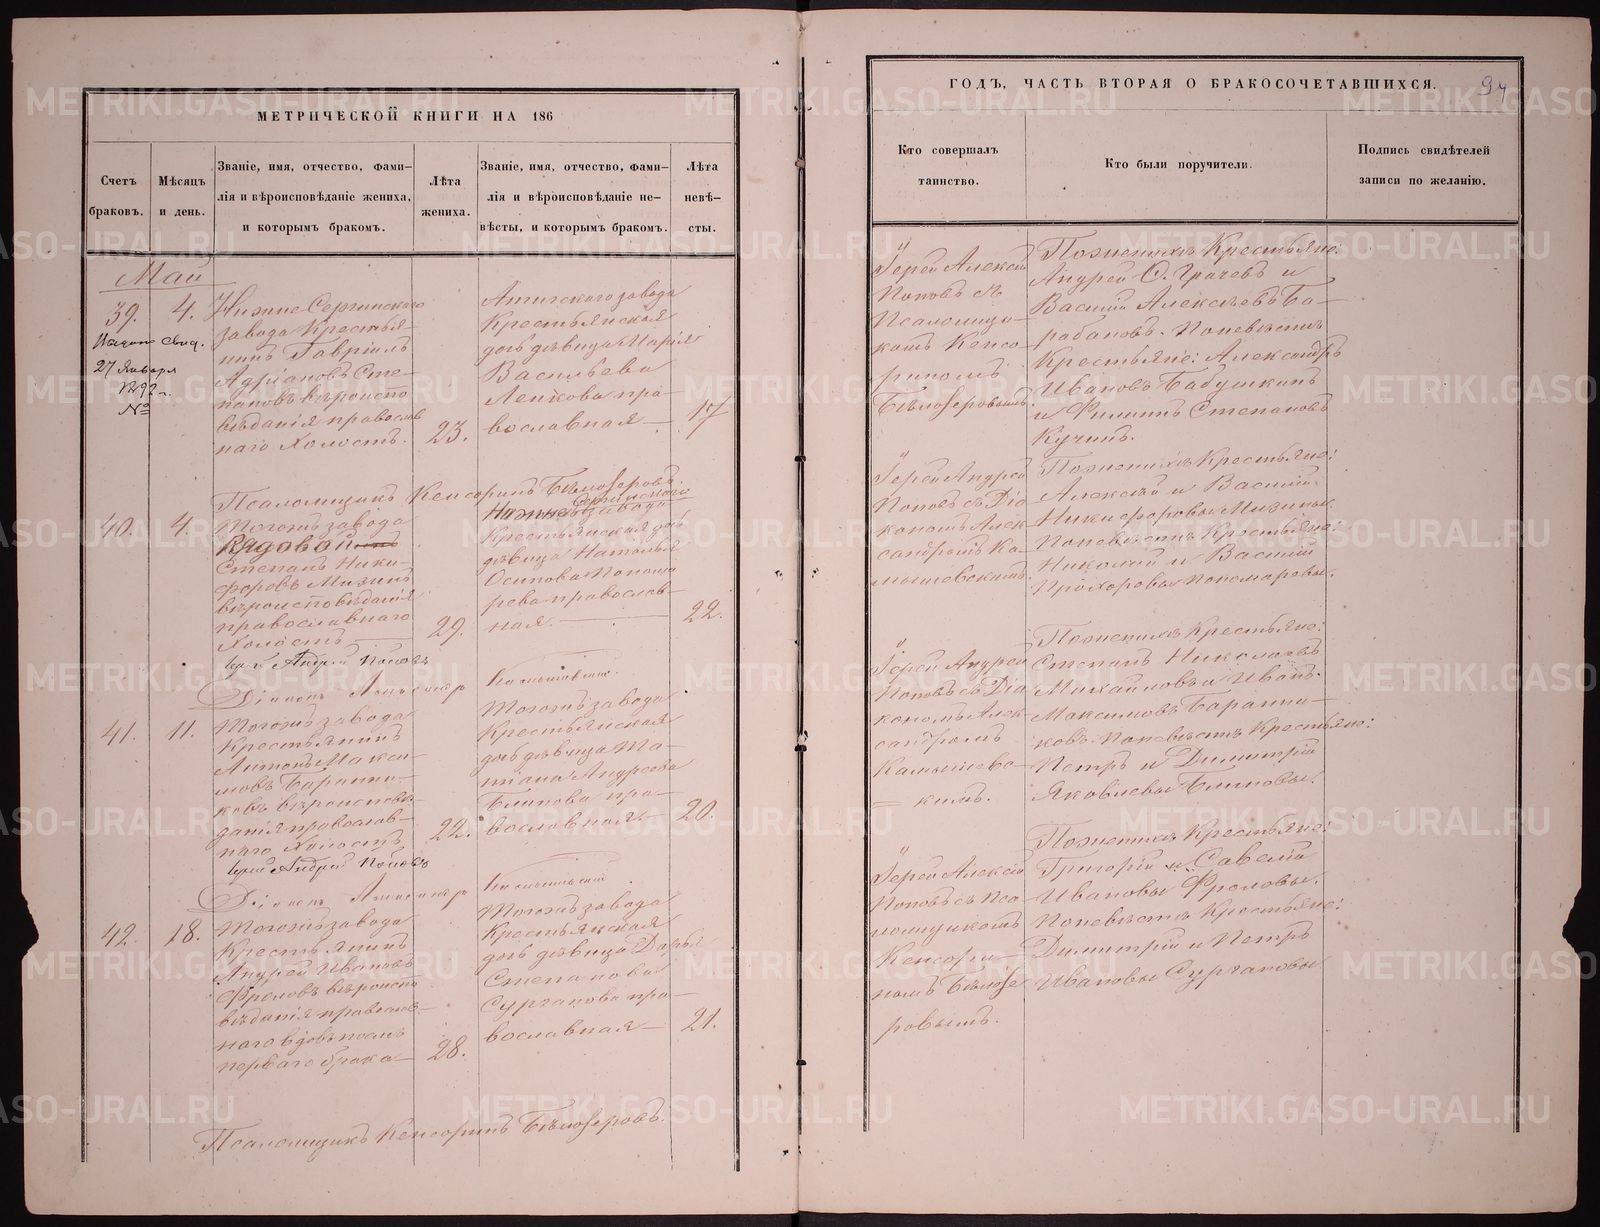 МЕТРИЧЕСКОЙ КНИГИ НА 186
Счетъ браковъ.
Мѣсяцъ и день.
Званіе, имя, отчество, фами-
лія и вѣроисповѣданіе жениха,
и которымъ бракомъ.
Лѣта
жениха.
Званіе, имя, отчество, фами-
лія и вѣроисповѣданіе не-
вѣсты, и которымъ бракомъ.
Лѣта
невѣ-
сты.
Май
39.
4.
27 Января
№
Нижне Сергинскаго
завода Крестья-
нинъ Гавріилъ
Адріановъ Сте-
пановъ вѣроиспо
вѣданія православ
наго Холостъ.
23.
Атигскаго завода
Крестьянская
дочь дѣвица Марія
Васильева
Лепкова пра-
вославная
17
Псаломщикъ Кенсоринъ Бѣлозеровъ.
40.
4.
Тогожъ завода
Рядовой
Степанъ Ники-
форовъ Мизинъ
вѣроисповѣданія
православнаго
Холостъ
29.
Нижне Сергинскаго
завода
Крестьянская дочь
дѣвица Наталья
Осипова Понома
рева православ-
ная.
22.
Іерей Андрей Поповъ
Діаконъ Александръ Камышевскій.
41.
11.
Тогожъ завода
Крестьянинъ
Антонъ Макси-
мовъ Баранни-
ковъ вѣроисповѣ-
данія православ-
наго Холостъ
22.
Тогожъ завода
Крестьянская
дочь дѣвица Та-
тіана Андреева
Блинова пра-
вославная
20.
Іерей Андрей Поповъ
Діаконъ Александръ Камышевскій
42.
18.
Тогожъ завода
Крестьянинъ
Андрей Ивановъ
Фроловъ вѣроиспо
вѣданія православ-
наго вдовъ послѣ
перваго брака
28.
Тогожъ завода
Крестьянская
дочь дѣвица Дарья
Степанова
Сургакова пра-
вославная
21.
Псаломщикъ Кенсоринъ Бѣлозеровъ.
ГОДЪ, ЧАСТЬ ВТОРАЯ О БРАКОСОЧЕТАВШИХСЯ.
94
Кто совершалъ
таинство.
Кто были поручители.
Подпись свидѣтелей
записи по желанію.
Іерей Алексій
Поповъ съ
Псаломщи-
комъ Кенсо-
риномъ
Бѣлозеровымъ.
По женихѣ Крестьяне:
Андрей О. Грачевъ и
Василій Алексѣевъ Ба-
рабановъ. По невѣстѣ
Крестьяне: Александръ
Ивановъ Бабушкинъ
и Филиппъ Степановъ
Кучинъ.
Іерей Андрей
Поповъ съ Діа
кономъ Алек
сандромъ Ка-
мышевскимъ
По женихѣ Крестьяне:
Алексѣй и Василій
Никифоровы Мизины.
По невѣстѣ Крестьяне:
Николай и Василій
Прохоровы Пономаревы.
Іерей Андрей
Поповъ съ Діа
кономъ Алек
сандромъ
Камышевс-
кимъ.
По женихѣ Крестьяне:
Степанъ Николаевъ
Михайловъ и Иванъ
Максимовъ Баранни-
ковъ. По невѣстѣ Крестьяне:
Петръ и Димитрій
Яковлевы Блиновы.
Іерей Алексій
Поповъ съ Пса
ломщикомъ
Кенсори-
номъ Бѣлозе
ровымъ.
По женихѣ Крестьяне:
Григорій и Савелій
Ивановы Фроловы.
По невѣстѣ Крестьяне:
Димитрій и Петръ
Ивановы Сургаковы
METRIKI.GASO-URAL.RU